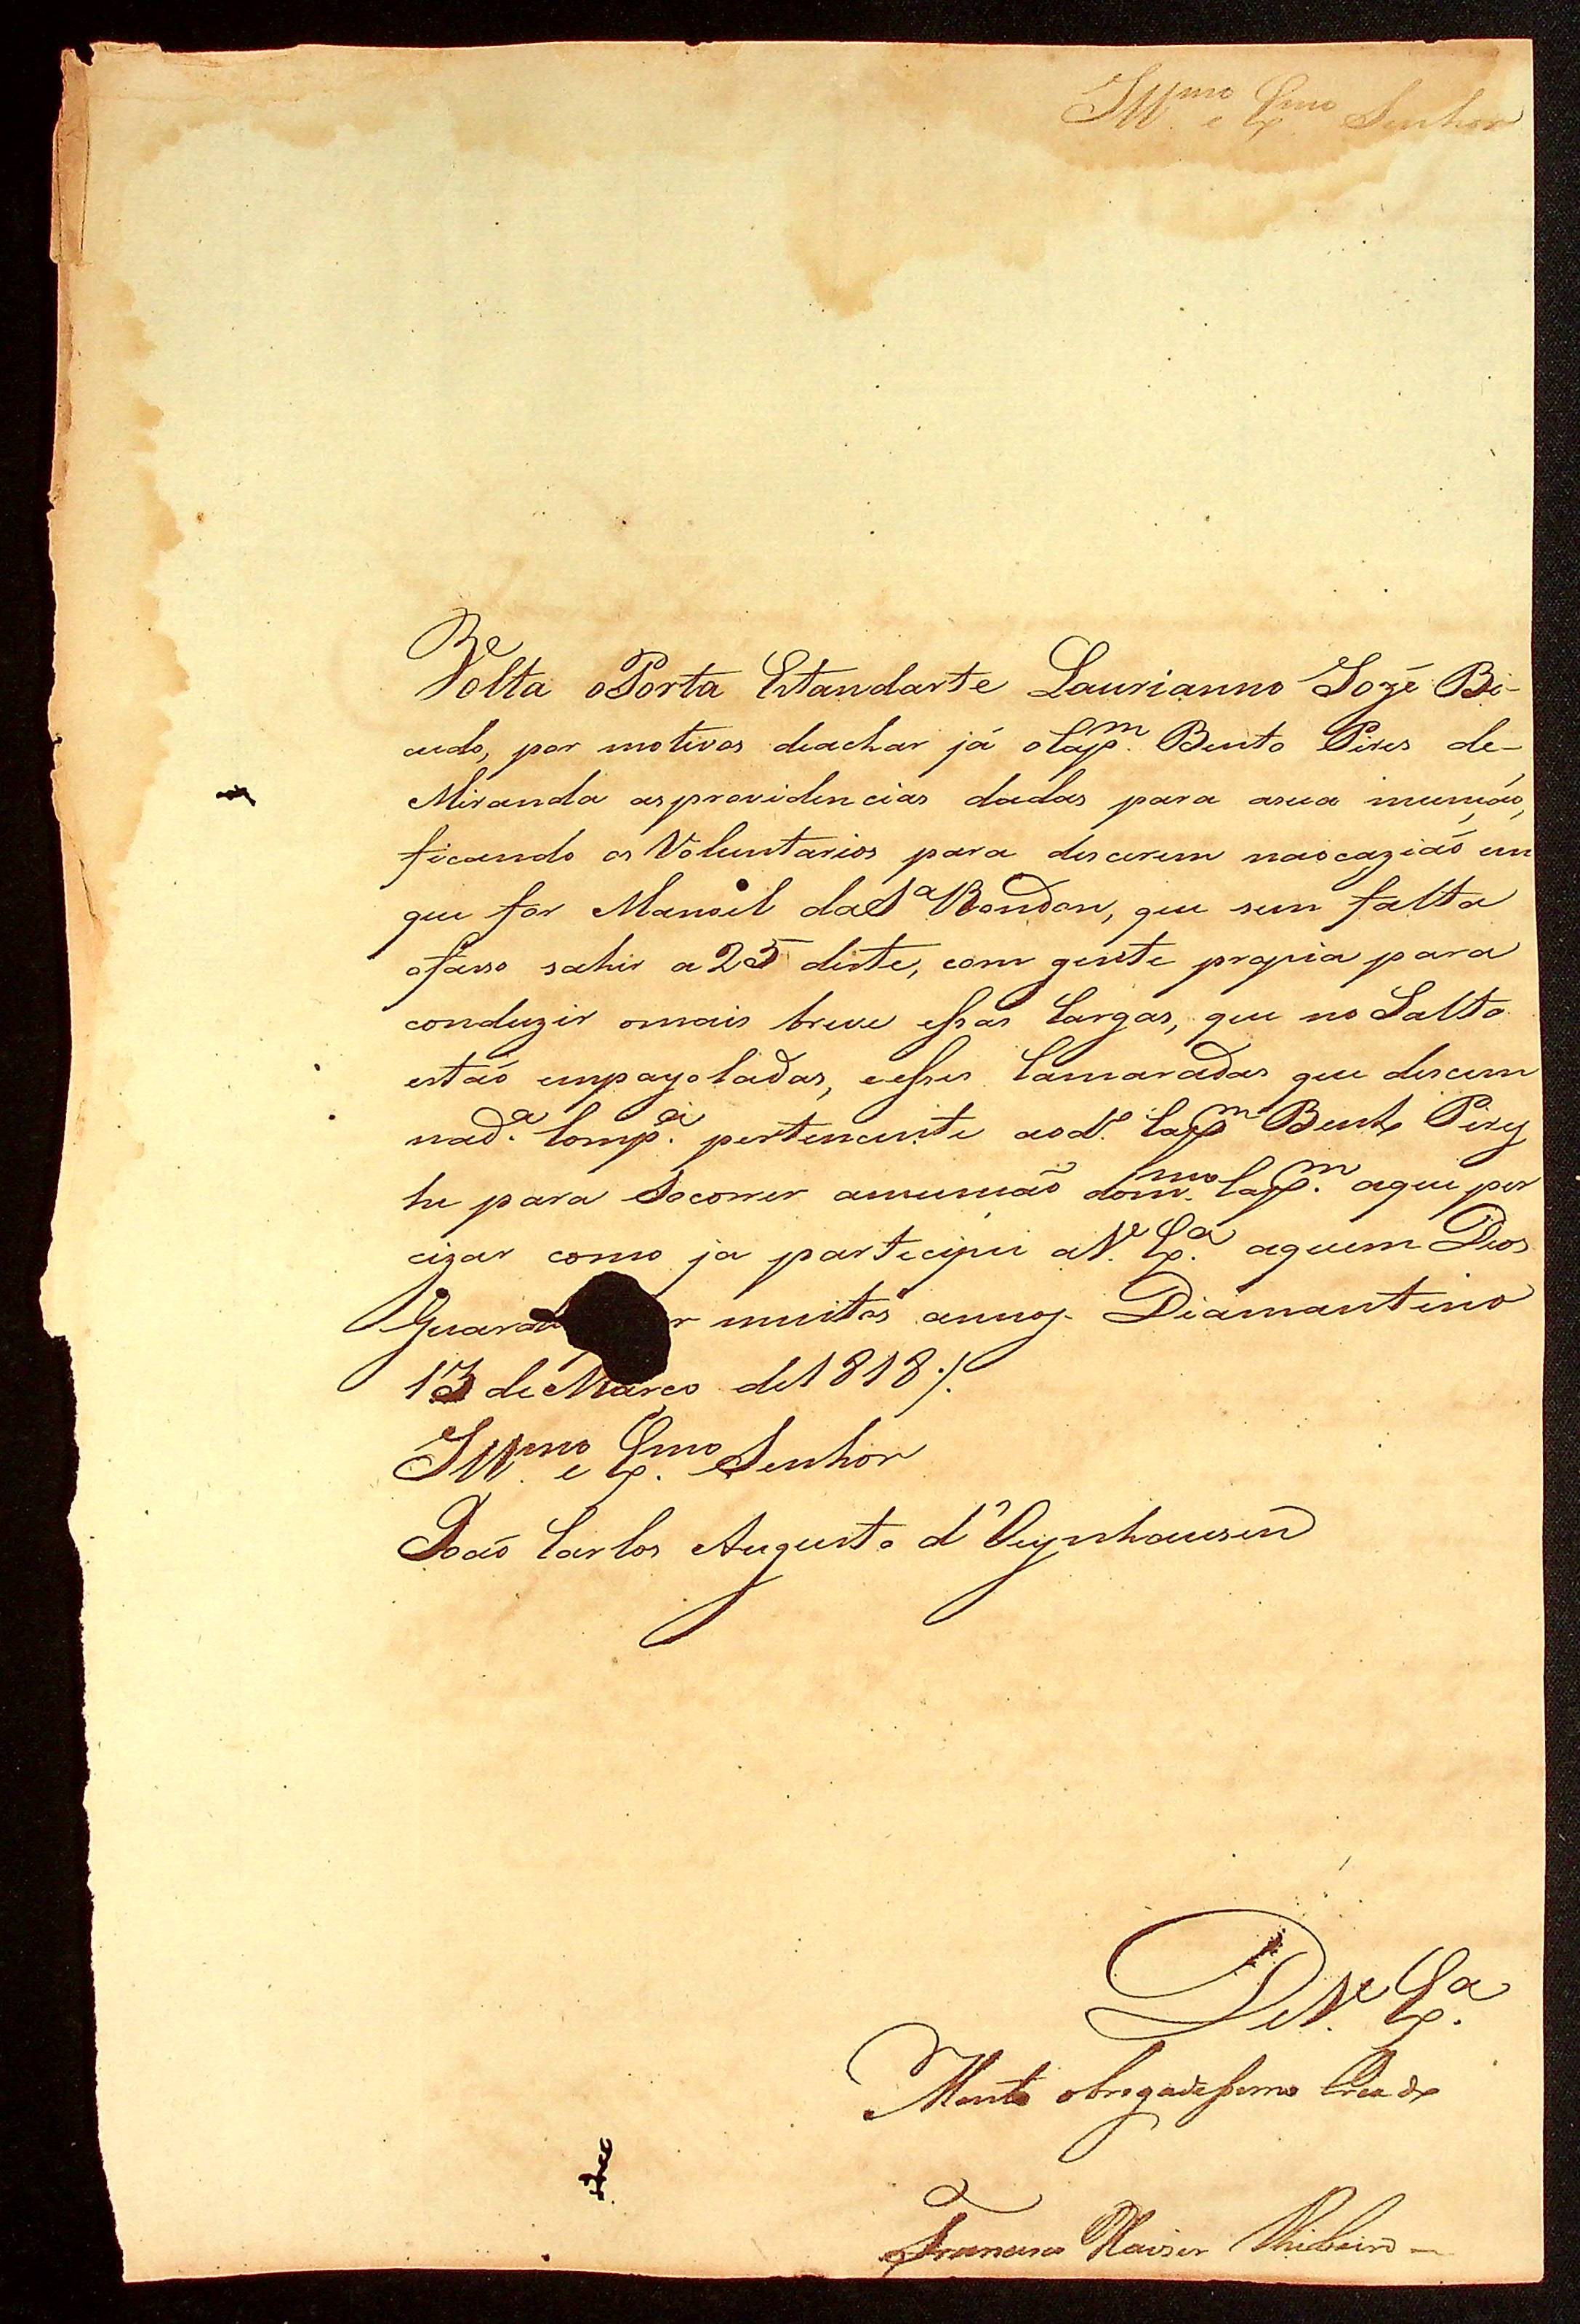 Ill.mo e Ex.mo Senhor
Volta oPorta Estandarte Laurianno Jozé Bi-
cudo, por motivos deachar já oCap.m Bento Pires de-
Miranda asprovidencias dadas para asua munição,
ficando os Voluntarios para descerem naocazião em
que for Manoel daSª Rondon, que sem falta
ofasso sahir a 25 deste, com gente propia para
conduzir omais breve essas Cargas, que no Salto
estão empayoladas, eesses Camaradas que descem
nad.a Comp.a pertencente aod.o Cap.m Bento Pires
he para Socorrer amunição dom.mo Cap.m aqui per
cizar como ja partecipei aV.e Ex.a aquem Deos
Guarde muitos annos. Diamantino
13 deMarço de1818 ./.
Ill.mo e Ex.mo Senhor
João Carlos Augusto d'Oeynhausen
DeV.e Ex.a
Muito obrigadessimo Creado
Francisco Xavier Ribeiro